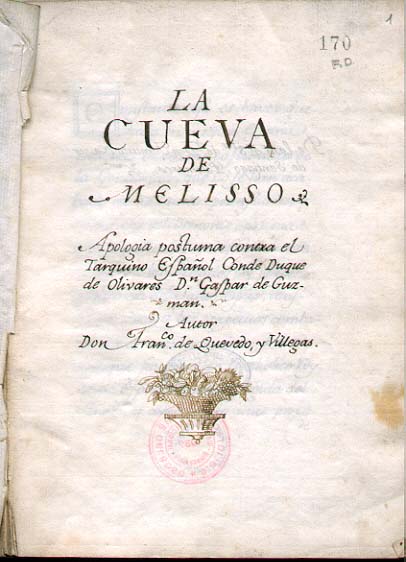 1
170
F.O.
LA
CUEVA
DE
MELISSO
Apologia postuma contra el
Tarquino Español Conde Duque
de Olivares D.ⁿ Gaspar de Guz-
man.
Autor
Don Fran.co de Quevedo, y Villegas.